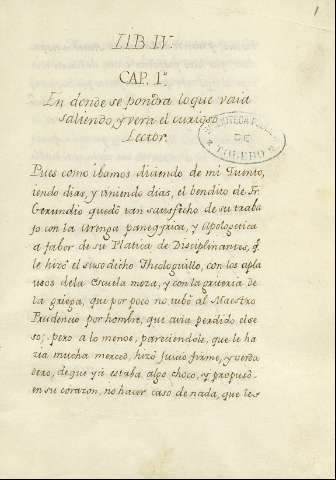 1
LIB. IV.
CAP. 1º.
En donde se pondra lo que vaia
saliendo, y verá el curioso
Lector.
BIBLIOTECA
DE
TOLEDO
Pues como ibamos diciendo de mi Quento,
iendo dias, y viniendo dias, el bendito de Fr.
Gerundio quedó tan satisfecho de su traba
jo con la Arenga panegyrica, y Apologetica
a fabor de su Platica de Disciplinantes, q.
le hizo el susodicho Theologuillo, con los apla
usos de la Escuela moza, y con la griteria de
la griega, que por poco no tubo al Maestro
Prudencio por hombre, que avia perdido el se
so; pero a lo menos, pareciendole, que le ha
zia mucha merced, hizo juicio firme, y verda
dero, de que yá estaba algo choco, y propuso
en su corazon, no hacer caso de nada, que les